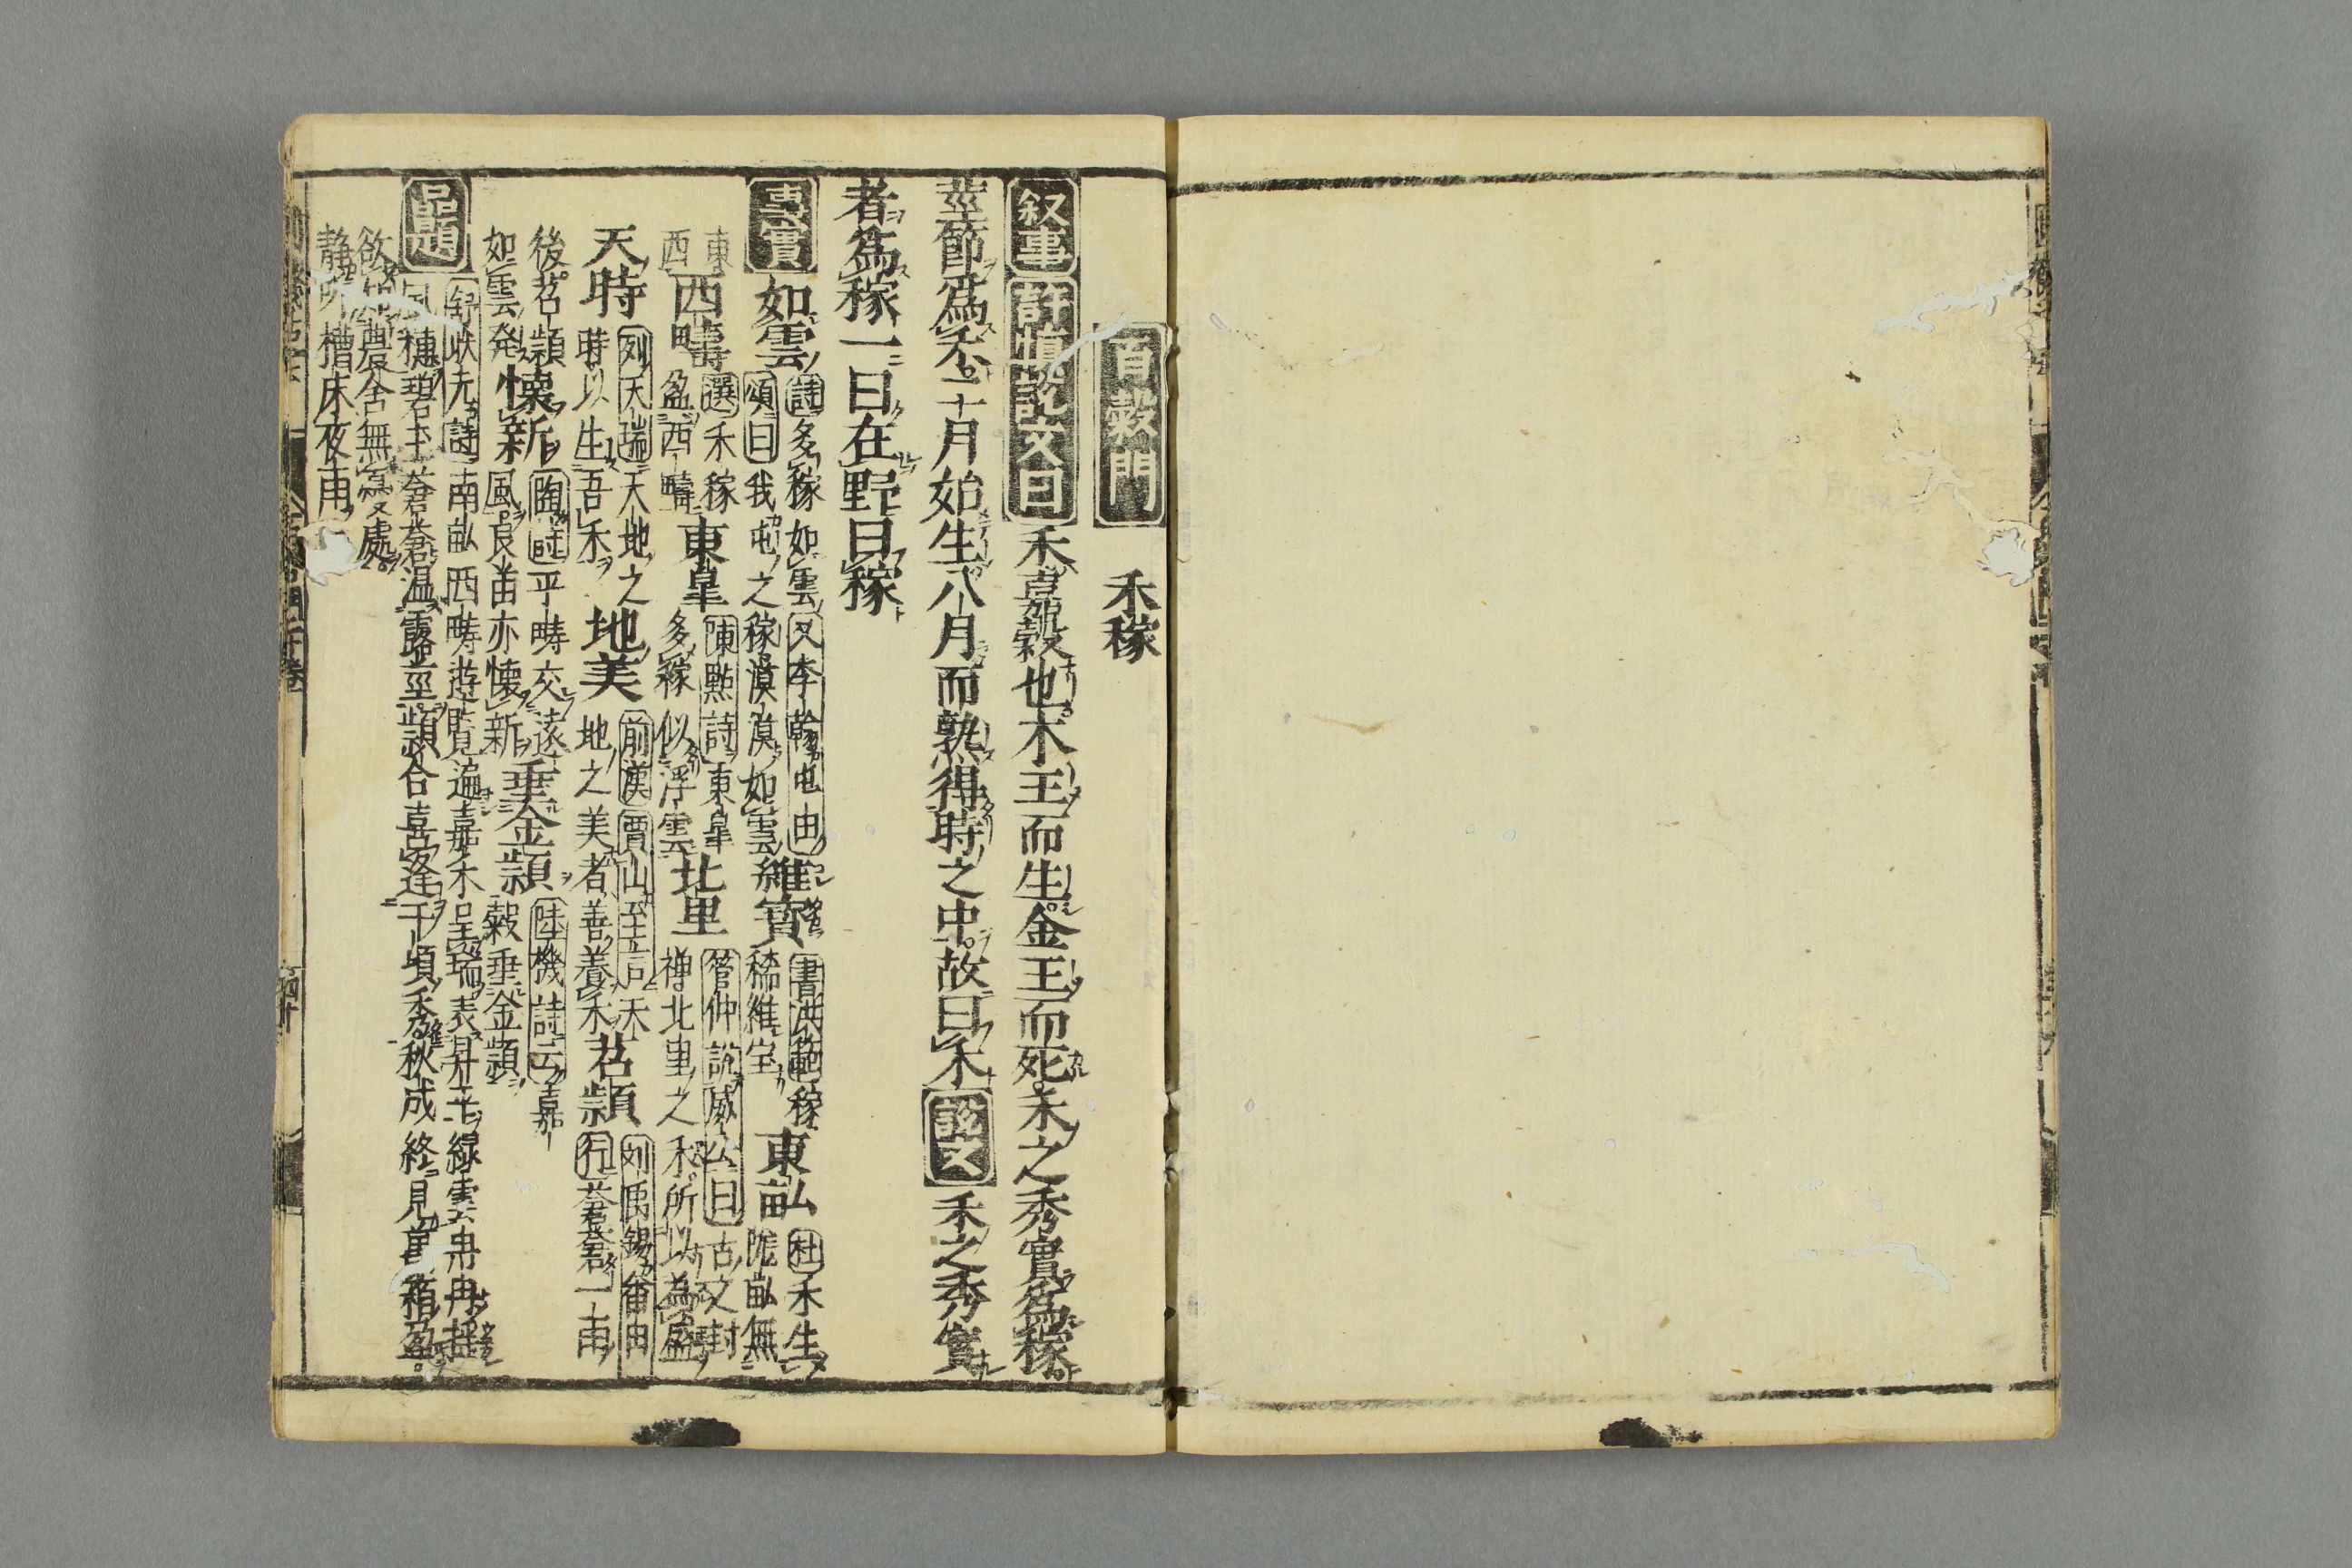 百穀門　禾稼
叙事　許慎説文曰　禾嘉穀也木王而生金王而死禾之秀實爲稼
莖節爲禾二月始生八月而熟得時之中故曰禾　説文　禾之秀實
者爲稼一曰在野曰稼
事實　如雲　詩多稼如雲又李翰屯田
頌曰我屯之稼漠漠如雲　維寶　書洪範稼
穡維宝　東畝　杜禾生
隴畝無
東西　西疇　選禾稼
盈西疇　東皐　陳黯詩東皐
多稼似浮雲　北里　管仲説威公曰古文封
禅北里之禾所以為盛
天時　列天瑞天地之
時以生吾禾　地美　前漢賈山至言
地之美者善養禾　苕頴　刘禹錫畬田
行蒼蒼一雨
後苕頴　懷新　陶詩平疇交遠
如雲発　風良苗亦懷新　垂金頴　陸機詩云嘉
穀垂金頴
品題　舒岐元詩　南畝西疇遊覧遍嘉禾呈瑞表昇平緑雲冉冉揺
風穗碧玉蒼蒼温露莖頴合喜逢千頃秀秋成終見萬箱盈
欲知農舍無憂處
静听槽床夜雨